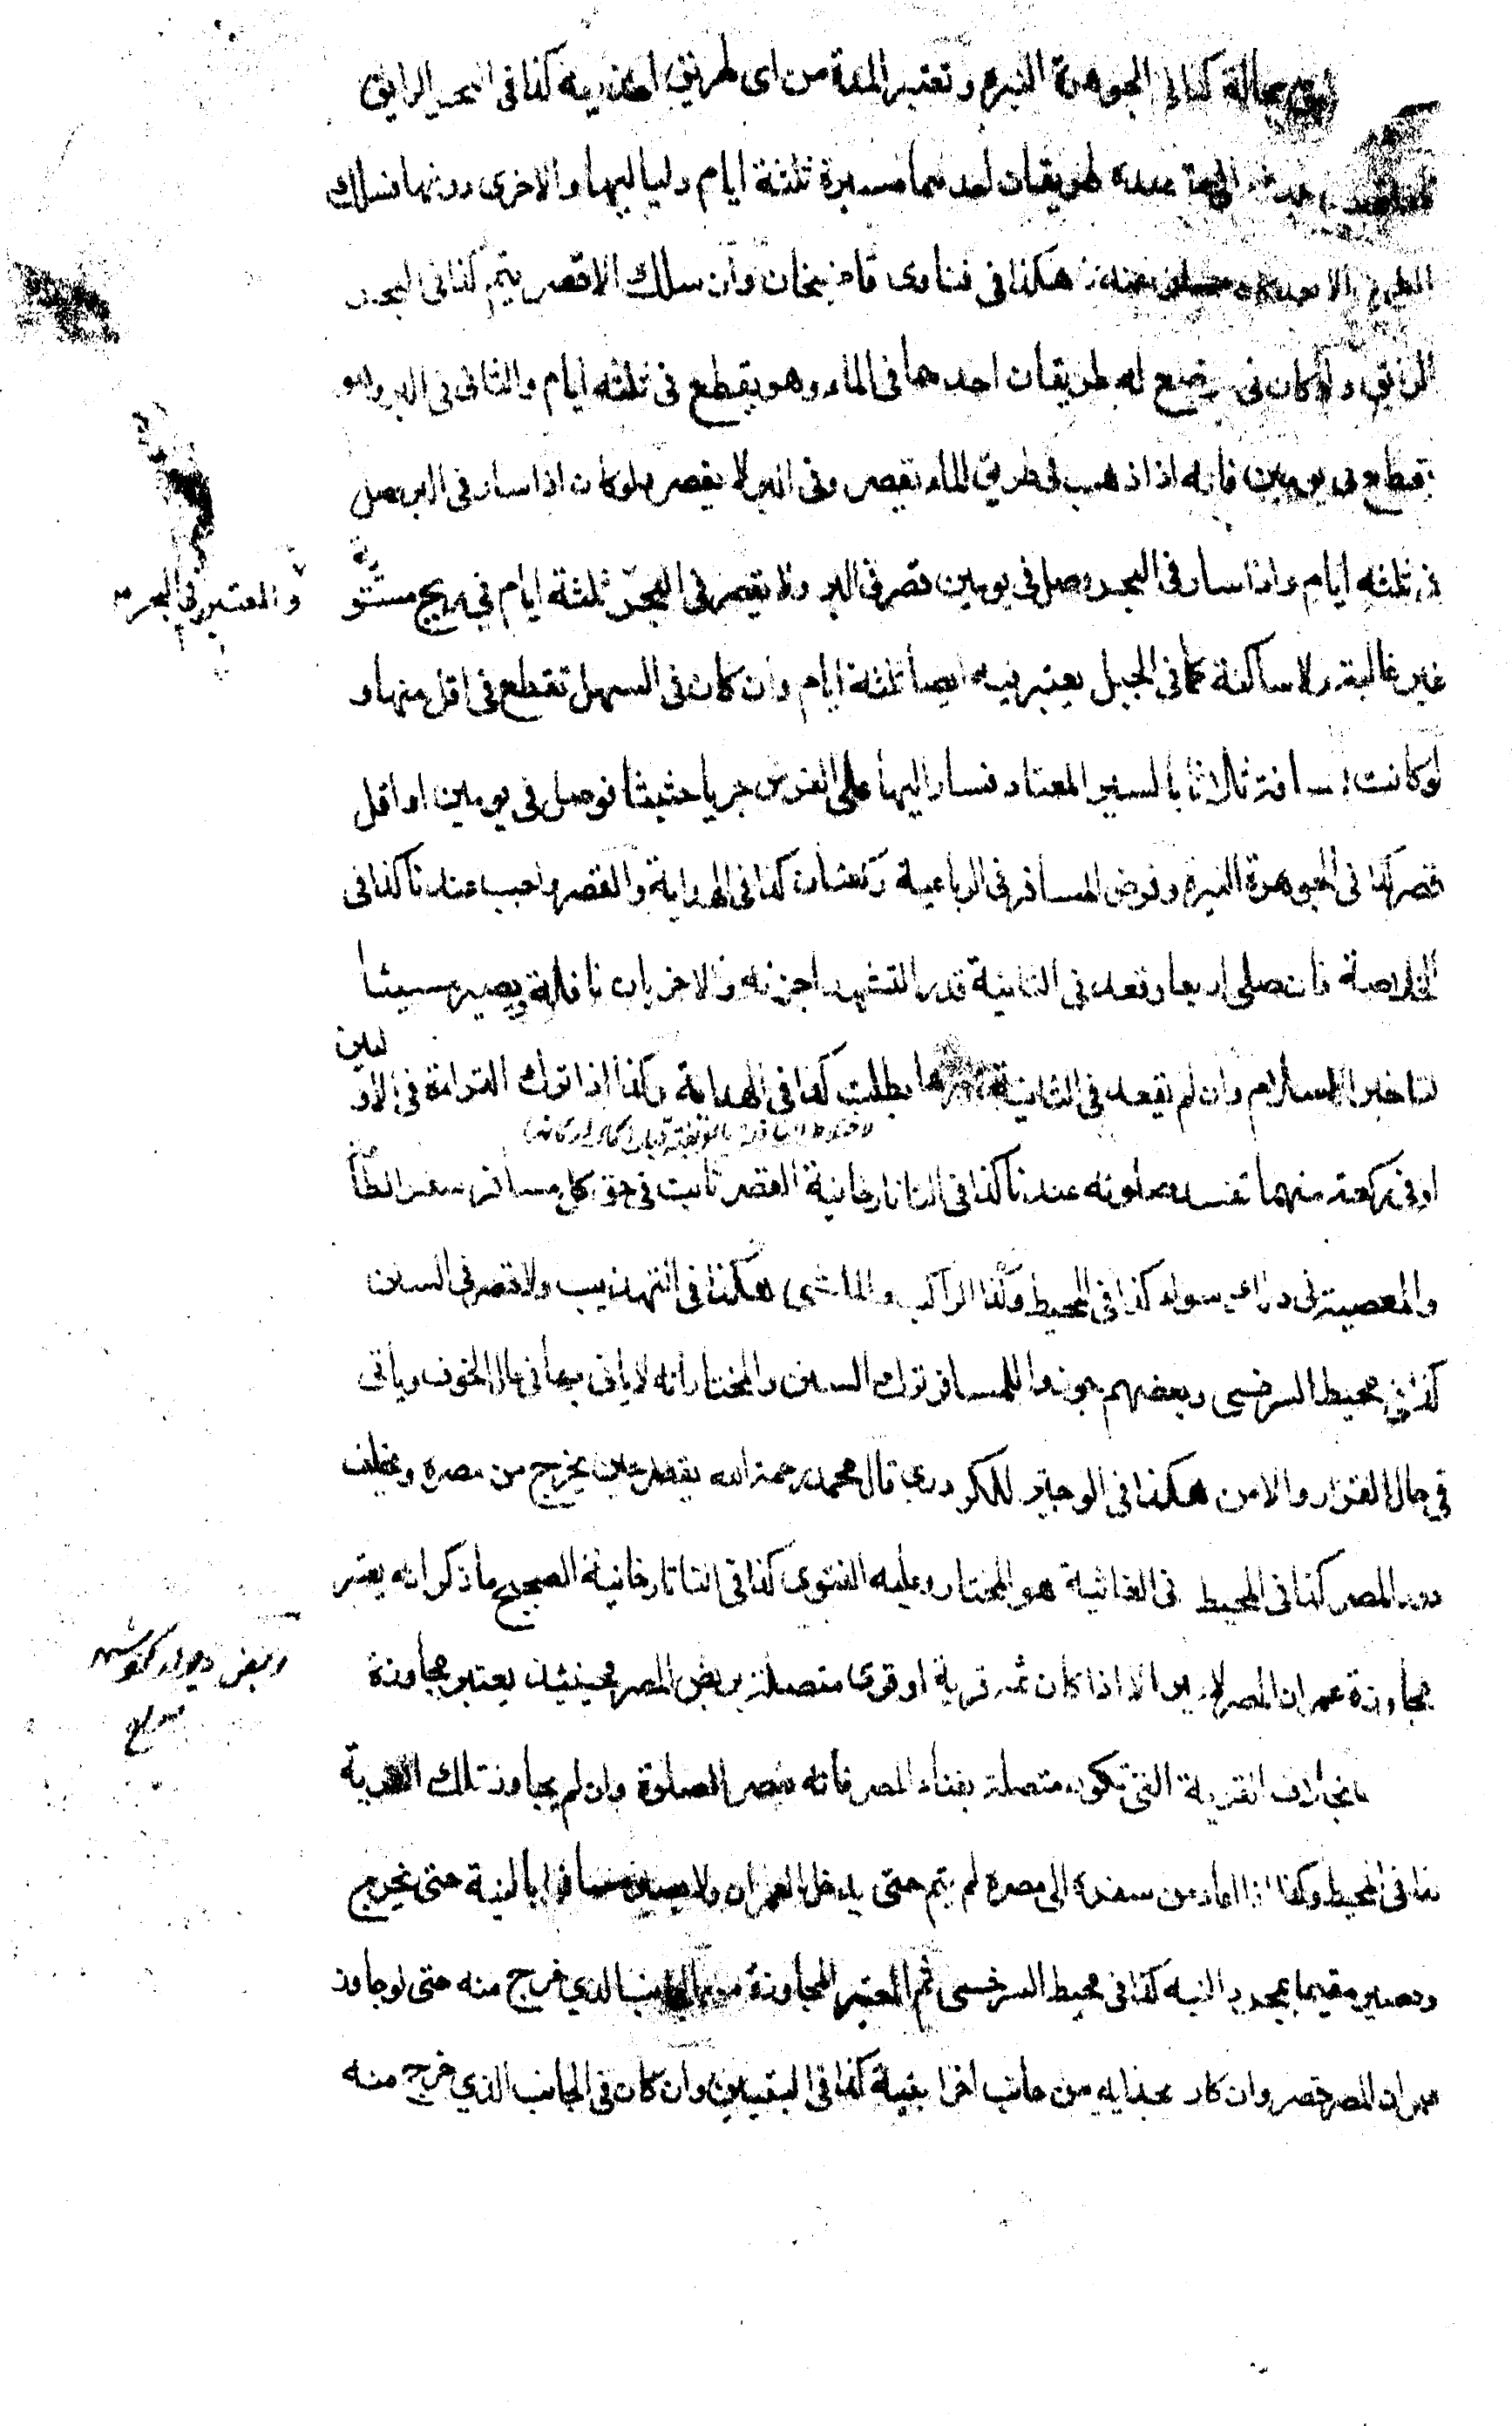 بحاله كذا في الجوهرة النيرة وتعتبر المدة من اى طريق اخذ فيه كذا في البحر الرائق
طريقان احدهما مسيرة ثلثة ايام ولياليها والاخرى دونها فسلك
الطريق الابعد هكذا في فتاوى قاضيخان وان سلك الاقصر يتم كذا في البحر
الرائق ولو كان في موضع له طريقان احدهما في الماء وهو يقطع في ثلثه ايام والثانى في البر وهو
يقطع في يومين فانه اذا ذهب في طريق الماء يقصر وفى البر لا يقصر ولو كان اذا سار في البر يصل
في ثلثه ايام واذا سار في البحر وصل في يومين قصر في البر ولا يقصر في البحر ثلثة ايام في ريح مستوية
والمعتبر في البحر
غير غالبة ولا ساكنة كما في الجبل يعتبر فيه ايضا ثلثة ايام وان كان في السهل تقطع في اقل منها و
لو كانت المسافة ثلاثا بالسير المعتاد فسار اليها على الفرس جريا حثيثا فوصل في يومين او اقل
قصر كذا في الجوهرة النيرة وفرض المسافر في الرباعية ركعتان كذا في الهداية والقصر واجب عندنا كذا في
الخلاصة فان صلى اربعا وقعد في الثانية قدر التشهد اجزته والاخريان نافلة ويصير مسيئا
لتاخير السلام وان لم يقعد في الثانية قدرها بطلت كذا في الهداية وكذا اذا ترك القراءة في الاوليين
لاختلاط النافلة بالفريضة قبل اكمال اركانها
او في ركعة منهما تفسد صلوته عندنا كذا في التاتارخانية القصر ثابت في حق كل مسافر سفر الطاعة
والمعصية في ذلك سواء كذا في المحيط وكذا الراكب والماشى هكذا في التهذيب ولا قصر في السنن
كذا في محيط السرخسى وبعضهم جوزوا للمسافر ترك السنن والمختار انه لا ياتى بها في حال الخوف وياتى
في حال القرار والامن هكذا في الوجيز للكردري قال محمد رحمه الله يقصر حين يخرج من مصره ويخلف
دور المصر كذا في المحيط في الغياثية هو المختار وعليه الفتوى كذا في التاتارخانية الصحيح ما ذكر انه يعتبر
مجاوزة عمران المصر لا غير الا اذا كان ثمه قرية او قرى متصلة بربض المصر فحينئذ يعتبر مجاوزة
بخلاف القرية التى تكون متصلة بفناء المصر فانه يقصر الصلوة وان لم يجاوز تلك القرية
كذا في المحيط وكذا اذا عاد من سفره الى مصره لم يتم حتى يدخل العمران ولا يصير مسافرا بالنية حتى يخرج
ويصير مقيما بمجرد النيه كذا في محيط السرخسى ثم المعتبر المجاوزة من الجانب الذي خرج منه حتى لو جاوز
عمران المصر قصر وان كان بحذايه من جانب اخر ابنية كذا في التبيين وان كان في الجانب الذي خرج منه